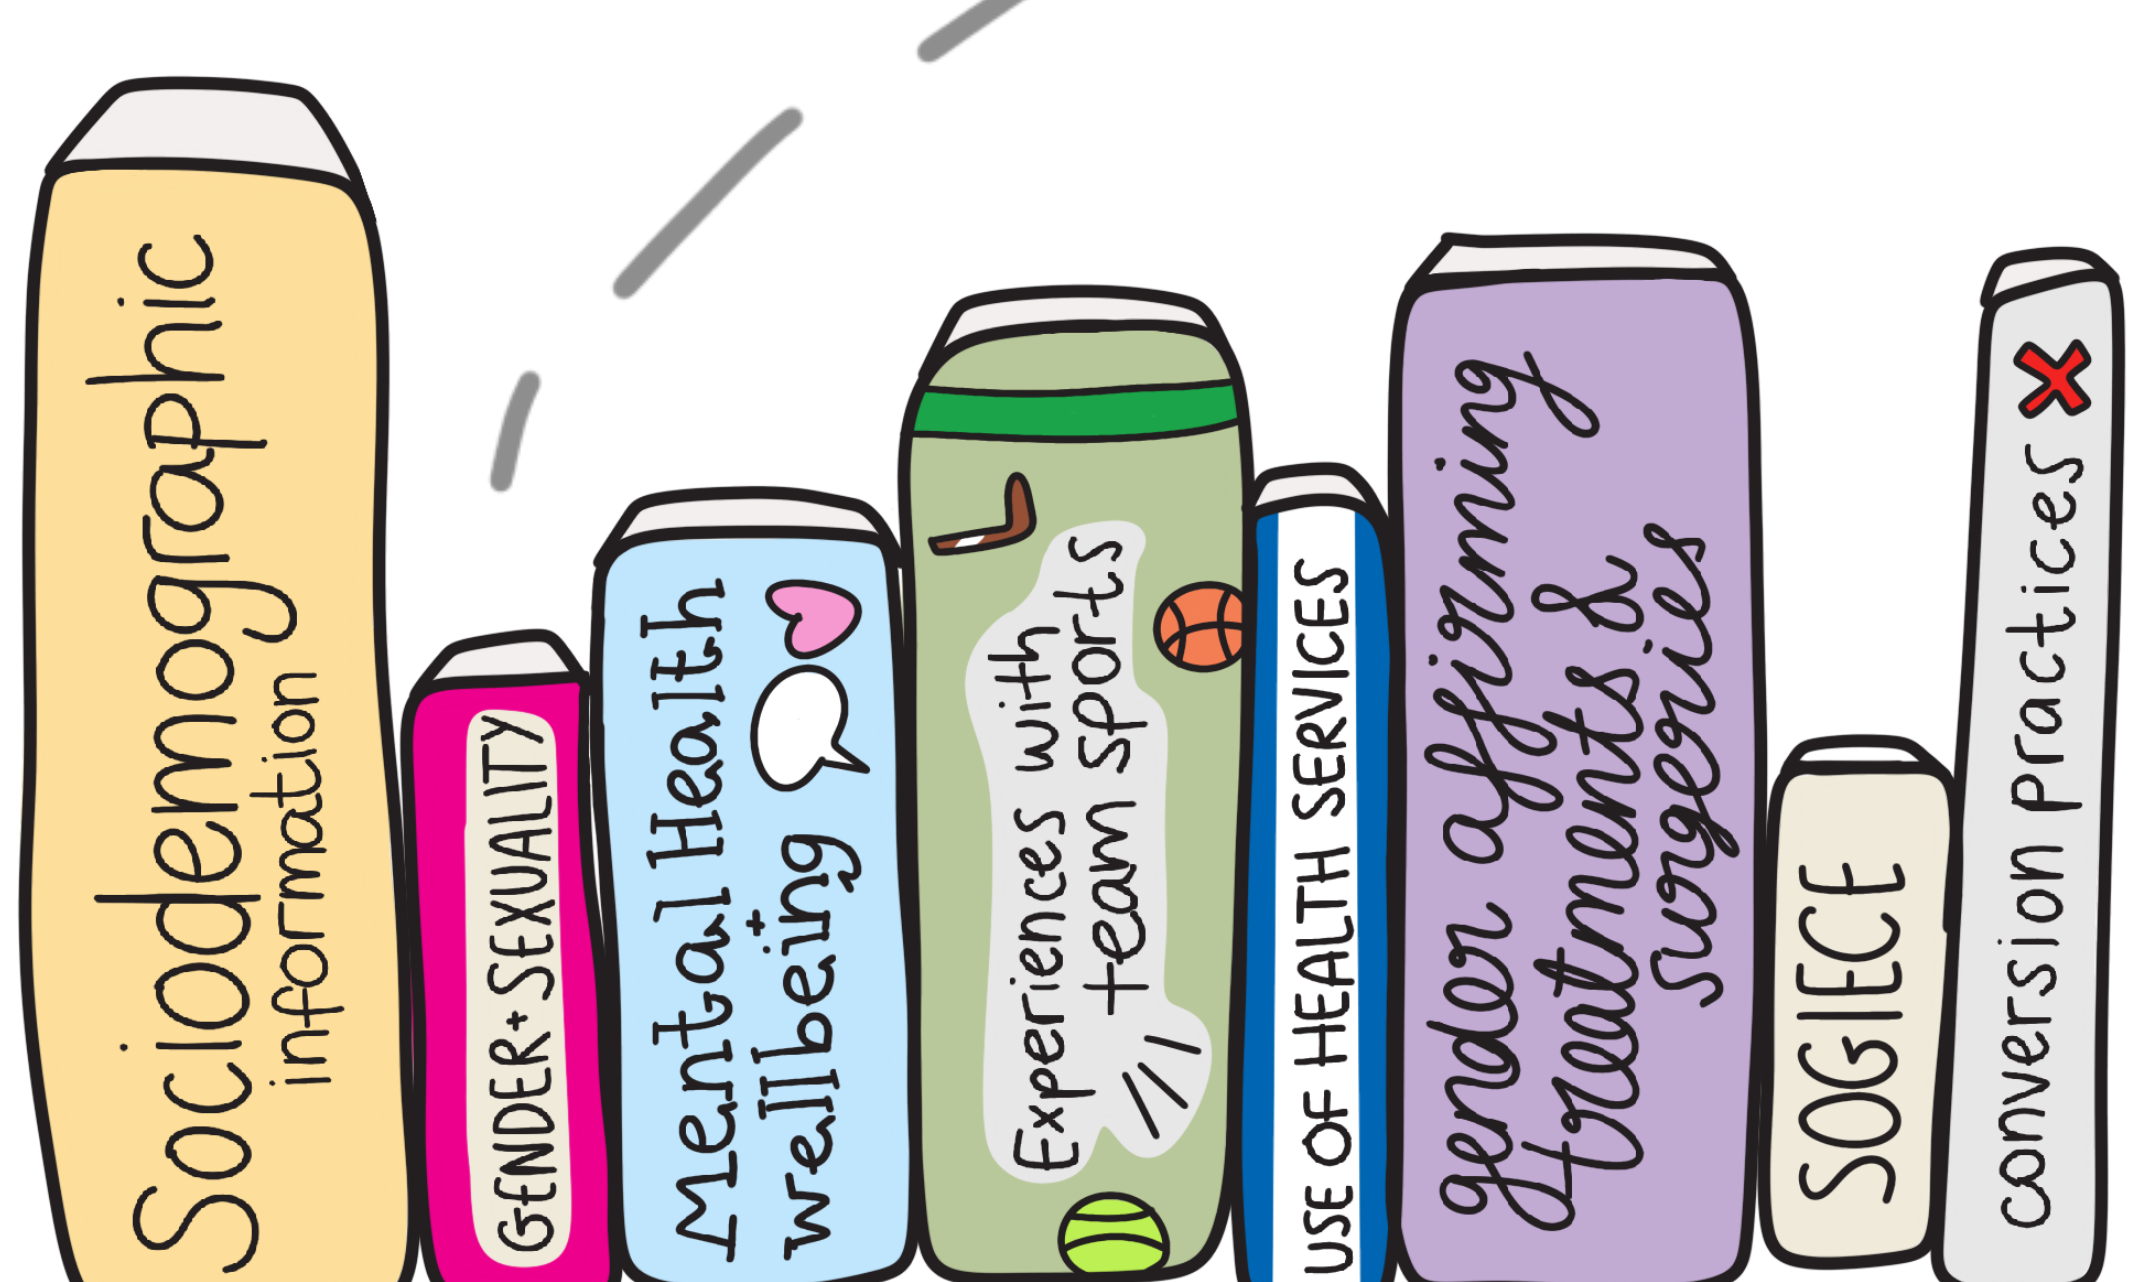 Sociodemographic
information
GENDER + SEXUALITY
Mental Health
wellbeing
Experiences with
team sports
USE OF HEALTH SERVICES
gender affirming
treatments &
surgeries
SOGIECE
conversion practices